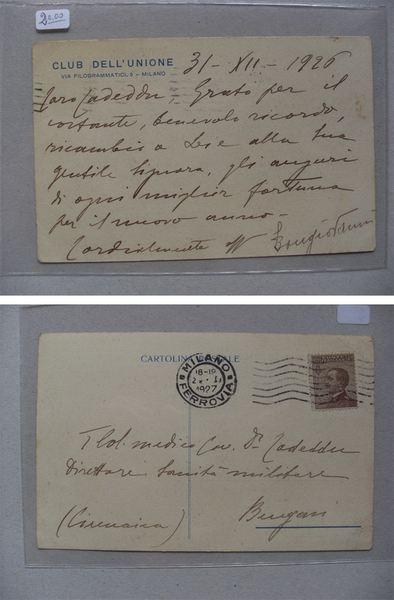 2.00
CLUB DELL'UNIONE
VIA FILODRAMMATICI, 2 - MILANO
31 - XII - 1926
Caro Cadeddu, Grato per il
costante, benevolo ricordo,
ricambio a Lei e alla Sua
gentile Signora, gli auguri
di ogni miglior fortuna
per il nuovo anno -
Cordialmente
Bongiovanni
CARTOLINA POSTALE
MILANO
18-19
1927
FERROVIA
medico Cav. Dr. Cadeddu
Direttore Sanità militare
(Cirenaica)
Bengasi